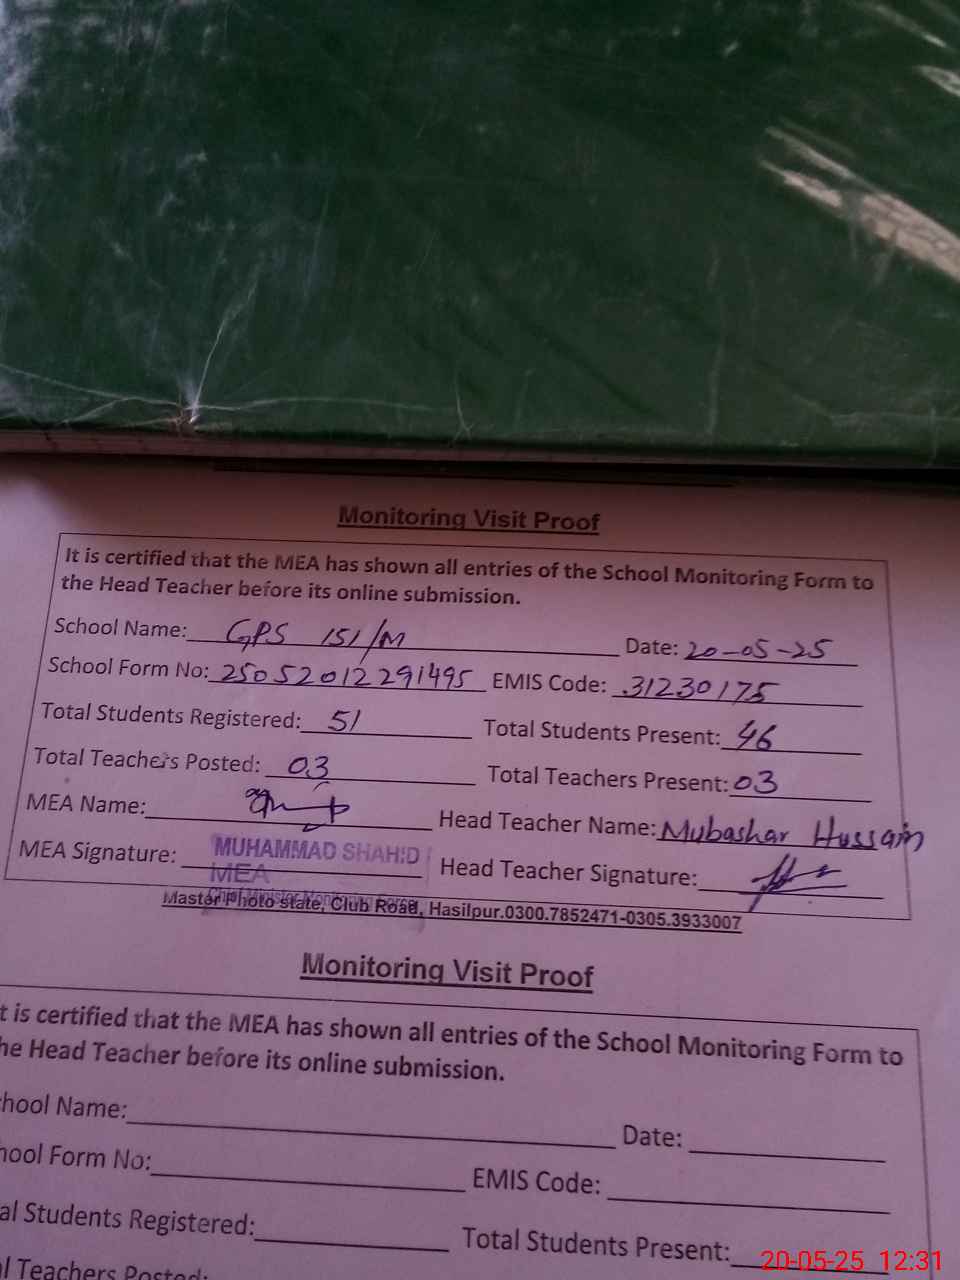 Monitoring Visit Proof
It is certified that the MEA has shown all entries of the School Monitoring Form to
the Head Teacher before its online submission.
School Name: GPS 151/M Date: 20-05-25
School Form No: 25052012291495 EMIS Code: 31230175
Total Students Registered: 51 Total Students Present: 46
Total Teachers Posted: 03 Total Teachers Present: 03
MEA Name: Head Teacher Name: Mubashar Hussain
MEA Signature: MUHAMMAD SHAHID Head Teacher Signature:
MEA
Chief Minister Monitoring Force
Master Photo state, Club Road, Hasilpur.0300.7852471-0305.3933007
Monitoring Visit Proof
t is certified that the MEA has shown all entries of the School Monitoring Form to
he Head Teacher before its online submission.
hool Name: Date:
hool Form No: EMIS Code:
al Students Registered: Total Students Present:
l Teachers Posted:
20-05-25 12:31